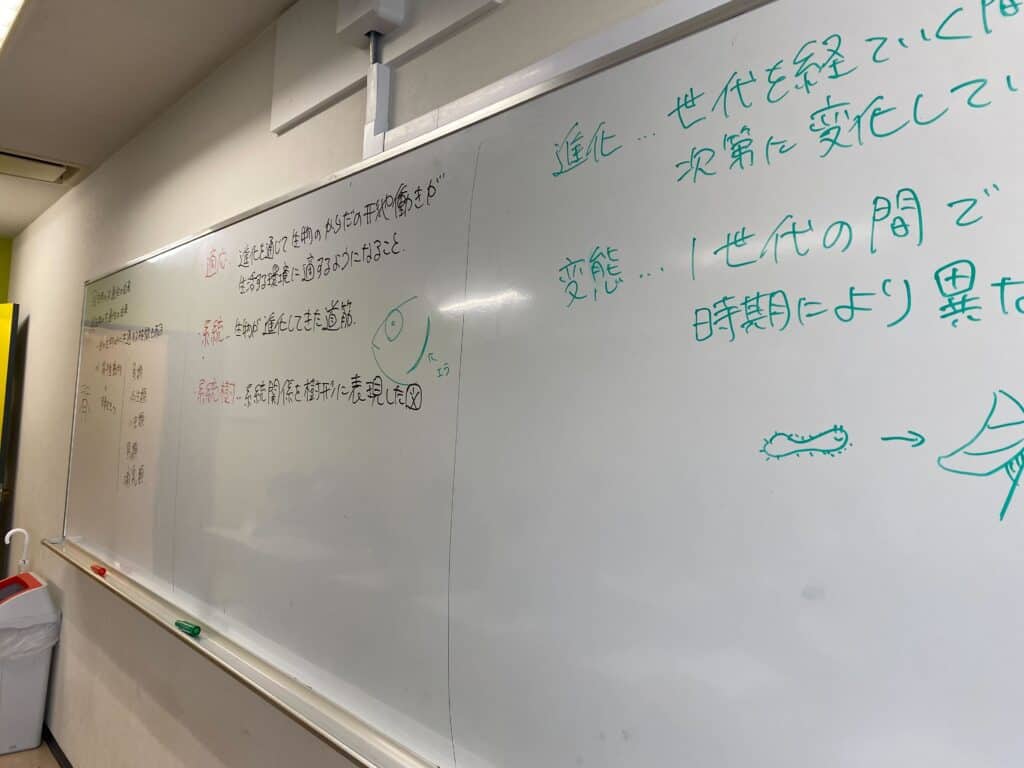 魚類
両生類
は虫類
鳥類
ほ乳類
適応… 進化を通じて生物のからだの形や働きが
生活する環境に適するようになること.
・系統… 生物が進化してきた道筋.
エラ
・系統樹… 系統関係を樹形に表現した図
進化… 世代を経ていく間
次第に変化してい
変態… 1世代の間で
時期により異な